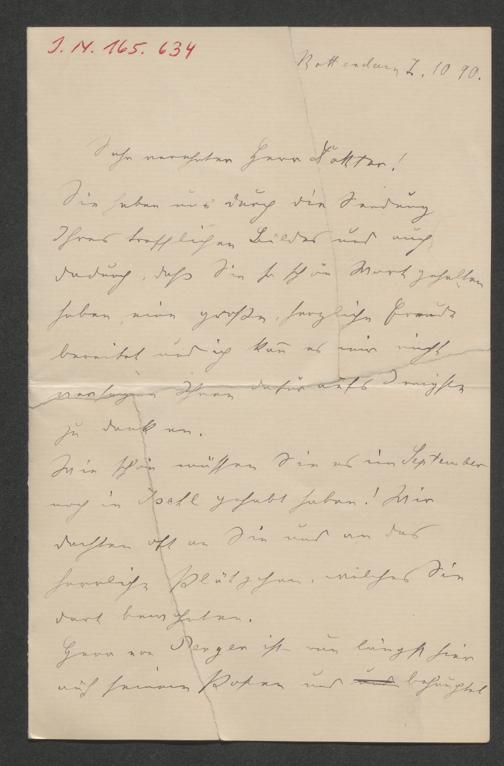 J. N. 165. 634
Rottenburg 7. 10 90.
Sehr verehrter Herr Doktor!
Sie haben uns durch die Sendung
Ihres trefflichen Bildes und auch
dadurch, daß Sie so schön Wort gehalten
haben, eine große, herzliche Freude
bereitet und ich kan̄ es mir nicht
versagen Ihnen dafür aufs Innigste
zu danken.
Wie schön müssen Sie es im September
noch in Ischl gehabt haben! Wir
dachten oft an Sie und an das
herrliche Plätzchen, welches Sie
dort bewohnten.
Herr von Perger ist nun längst hier
auf seinem Posten und behauptet